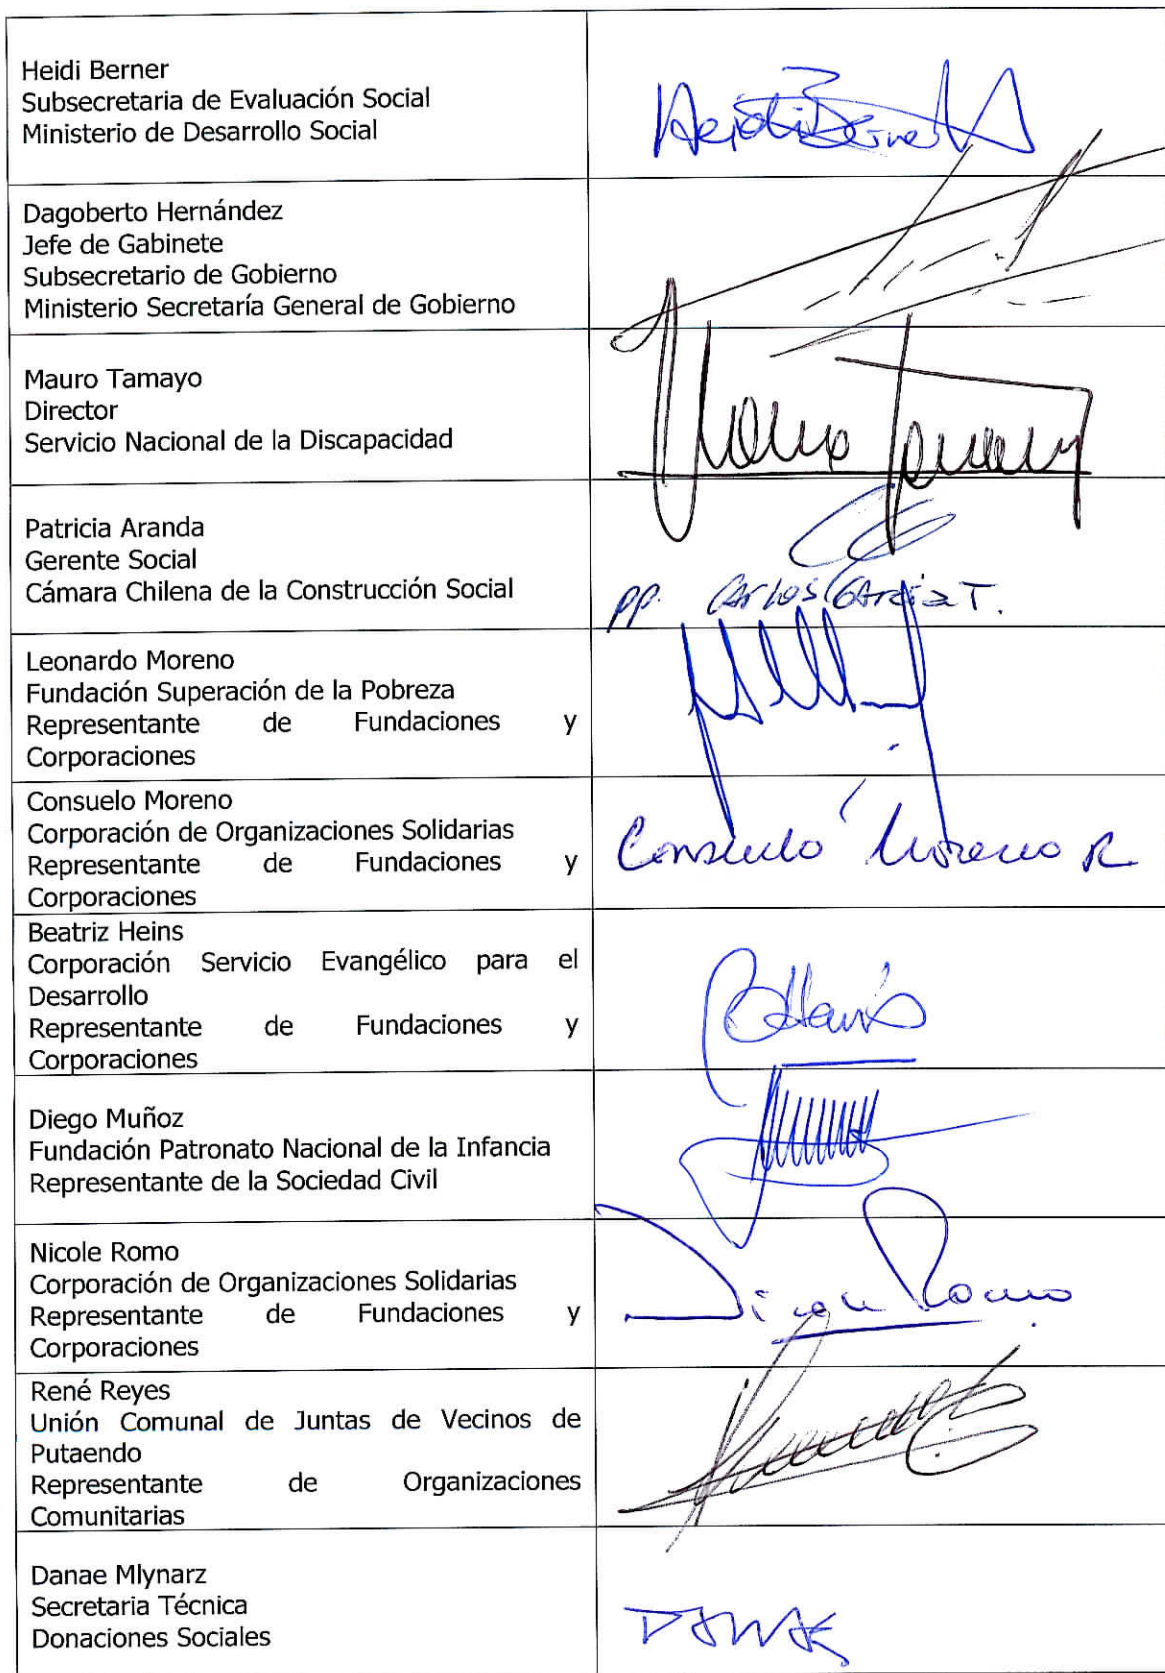 Heidi Berner
Subsecretaria de Evaluación Social
Ministerio de Desarrollo Social
Heidi Berner
Dagoberto Hernández
Jefe de Gabinete
Subsecretario de Gobierno
Ministerio Secretaría General de Gobierno
Mauro Tamayo
Director
Servicio Nacional de la Discapacidad
Patricia Aranda
Gerente Social
Cámara Chilena de la Construcción Social
pp. Carlos García T.
Leonardo Moreno
Fundación Superación de la Pobreza
Representante de Fundaciones y
Corporaciones
Consuelo Moreno
Corporación de Organizaciones Solidarias
Representante de Fundaciones y
Corporaciones
Consuelo Moreno R
Beatriz Heins
Corporación Servicio Evangélico para el
Desarrollo
Representante de Fundaciones y
Corporaciones
Diego Muñoz
Fundación Patronato Nacional de la Infancia
Representante de la Sociedad Civil
Nicole Romo
Corporación de Organizaciones Solidarias
Representante de Fundaciones y
Corporaciones
Romo
René Reyes
Unión Comunal de Juntas de Vecinos de
Putaendo
Representante de Organizaciones
Comunitarias
Danae Mlynarz
Secretaria Técnica
Donaciones Sociales
DANAE